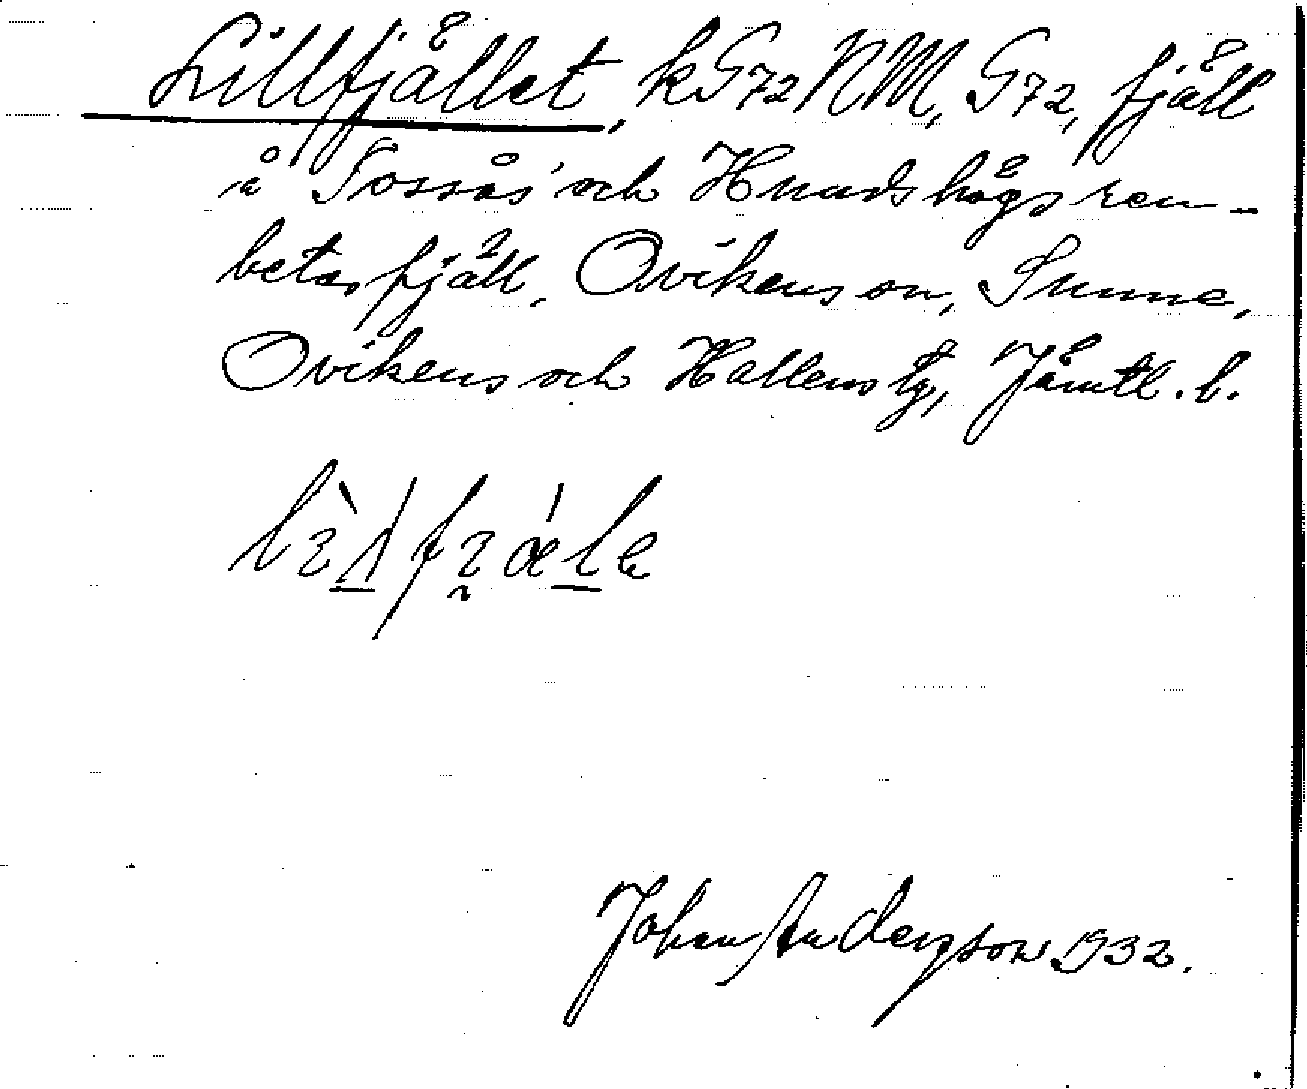 Lillfjället, kG72NM, G72, fjäll
å Tossås' och Hundshögs ren-
betesfjäll, Ovikens sn, Sunne,
Ovikens och Hallens tg, Jämtl. l.
Johan Anderson 1932.